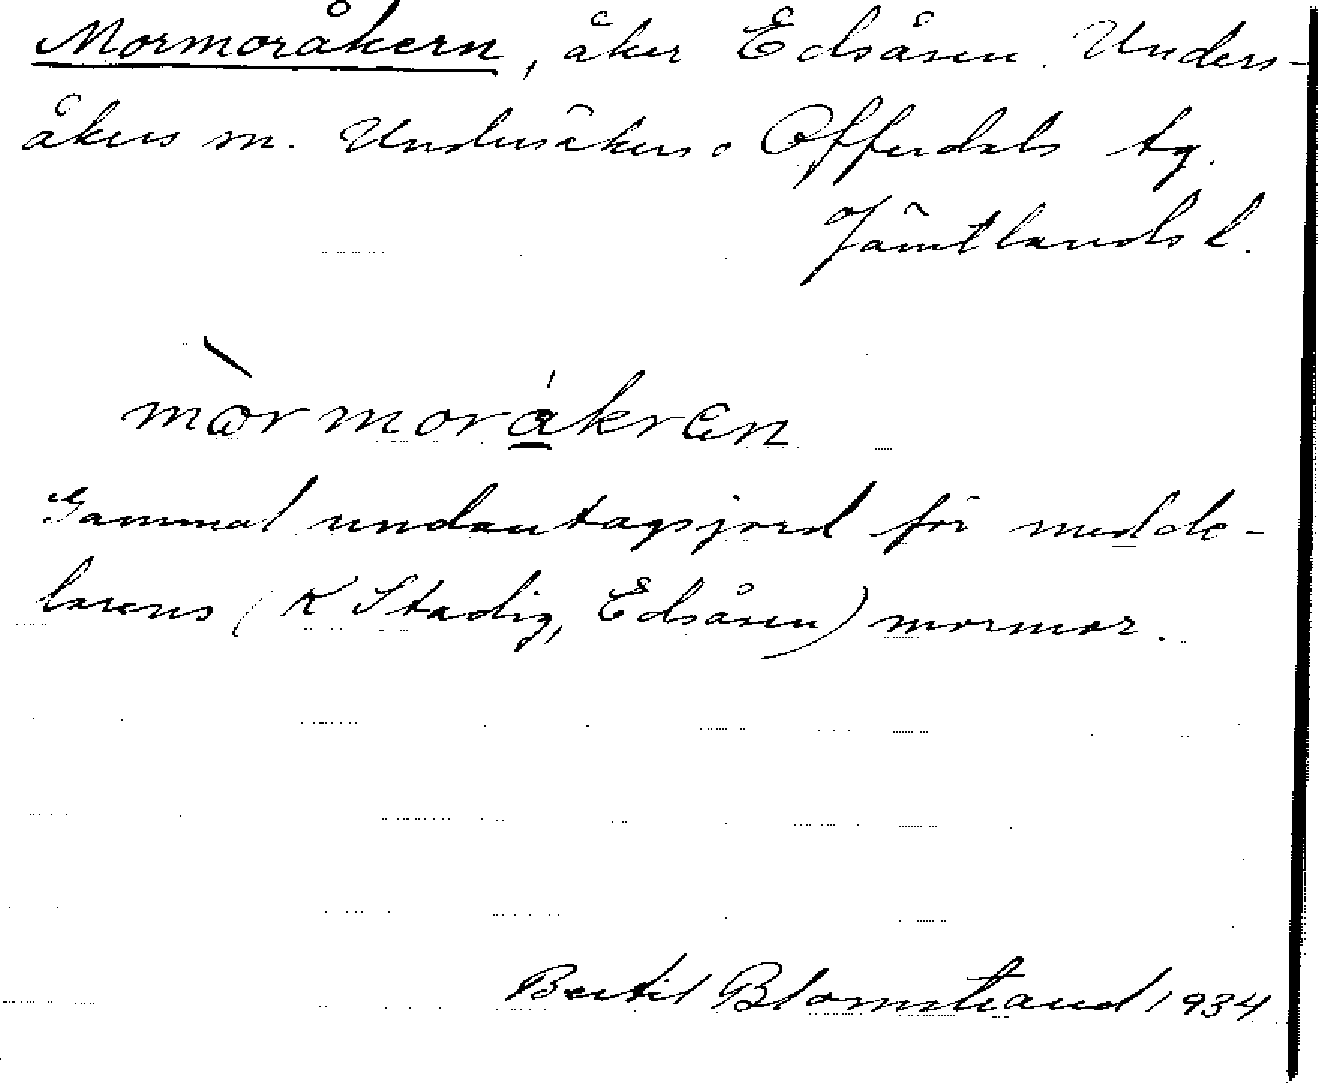 Mormoråkern, åker Edsåsen. Unders-
åkers sn. Undersåkers o Offerdals tg.
Jämtlands l.
mòrmoråkræn
Gammal undantagsjord för medde-
larens (K Stadig, Edsåsen) mormor.
Bertil Blomstrand 1934